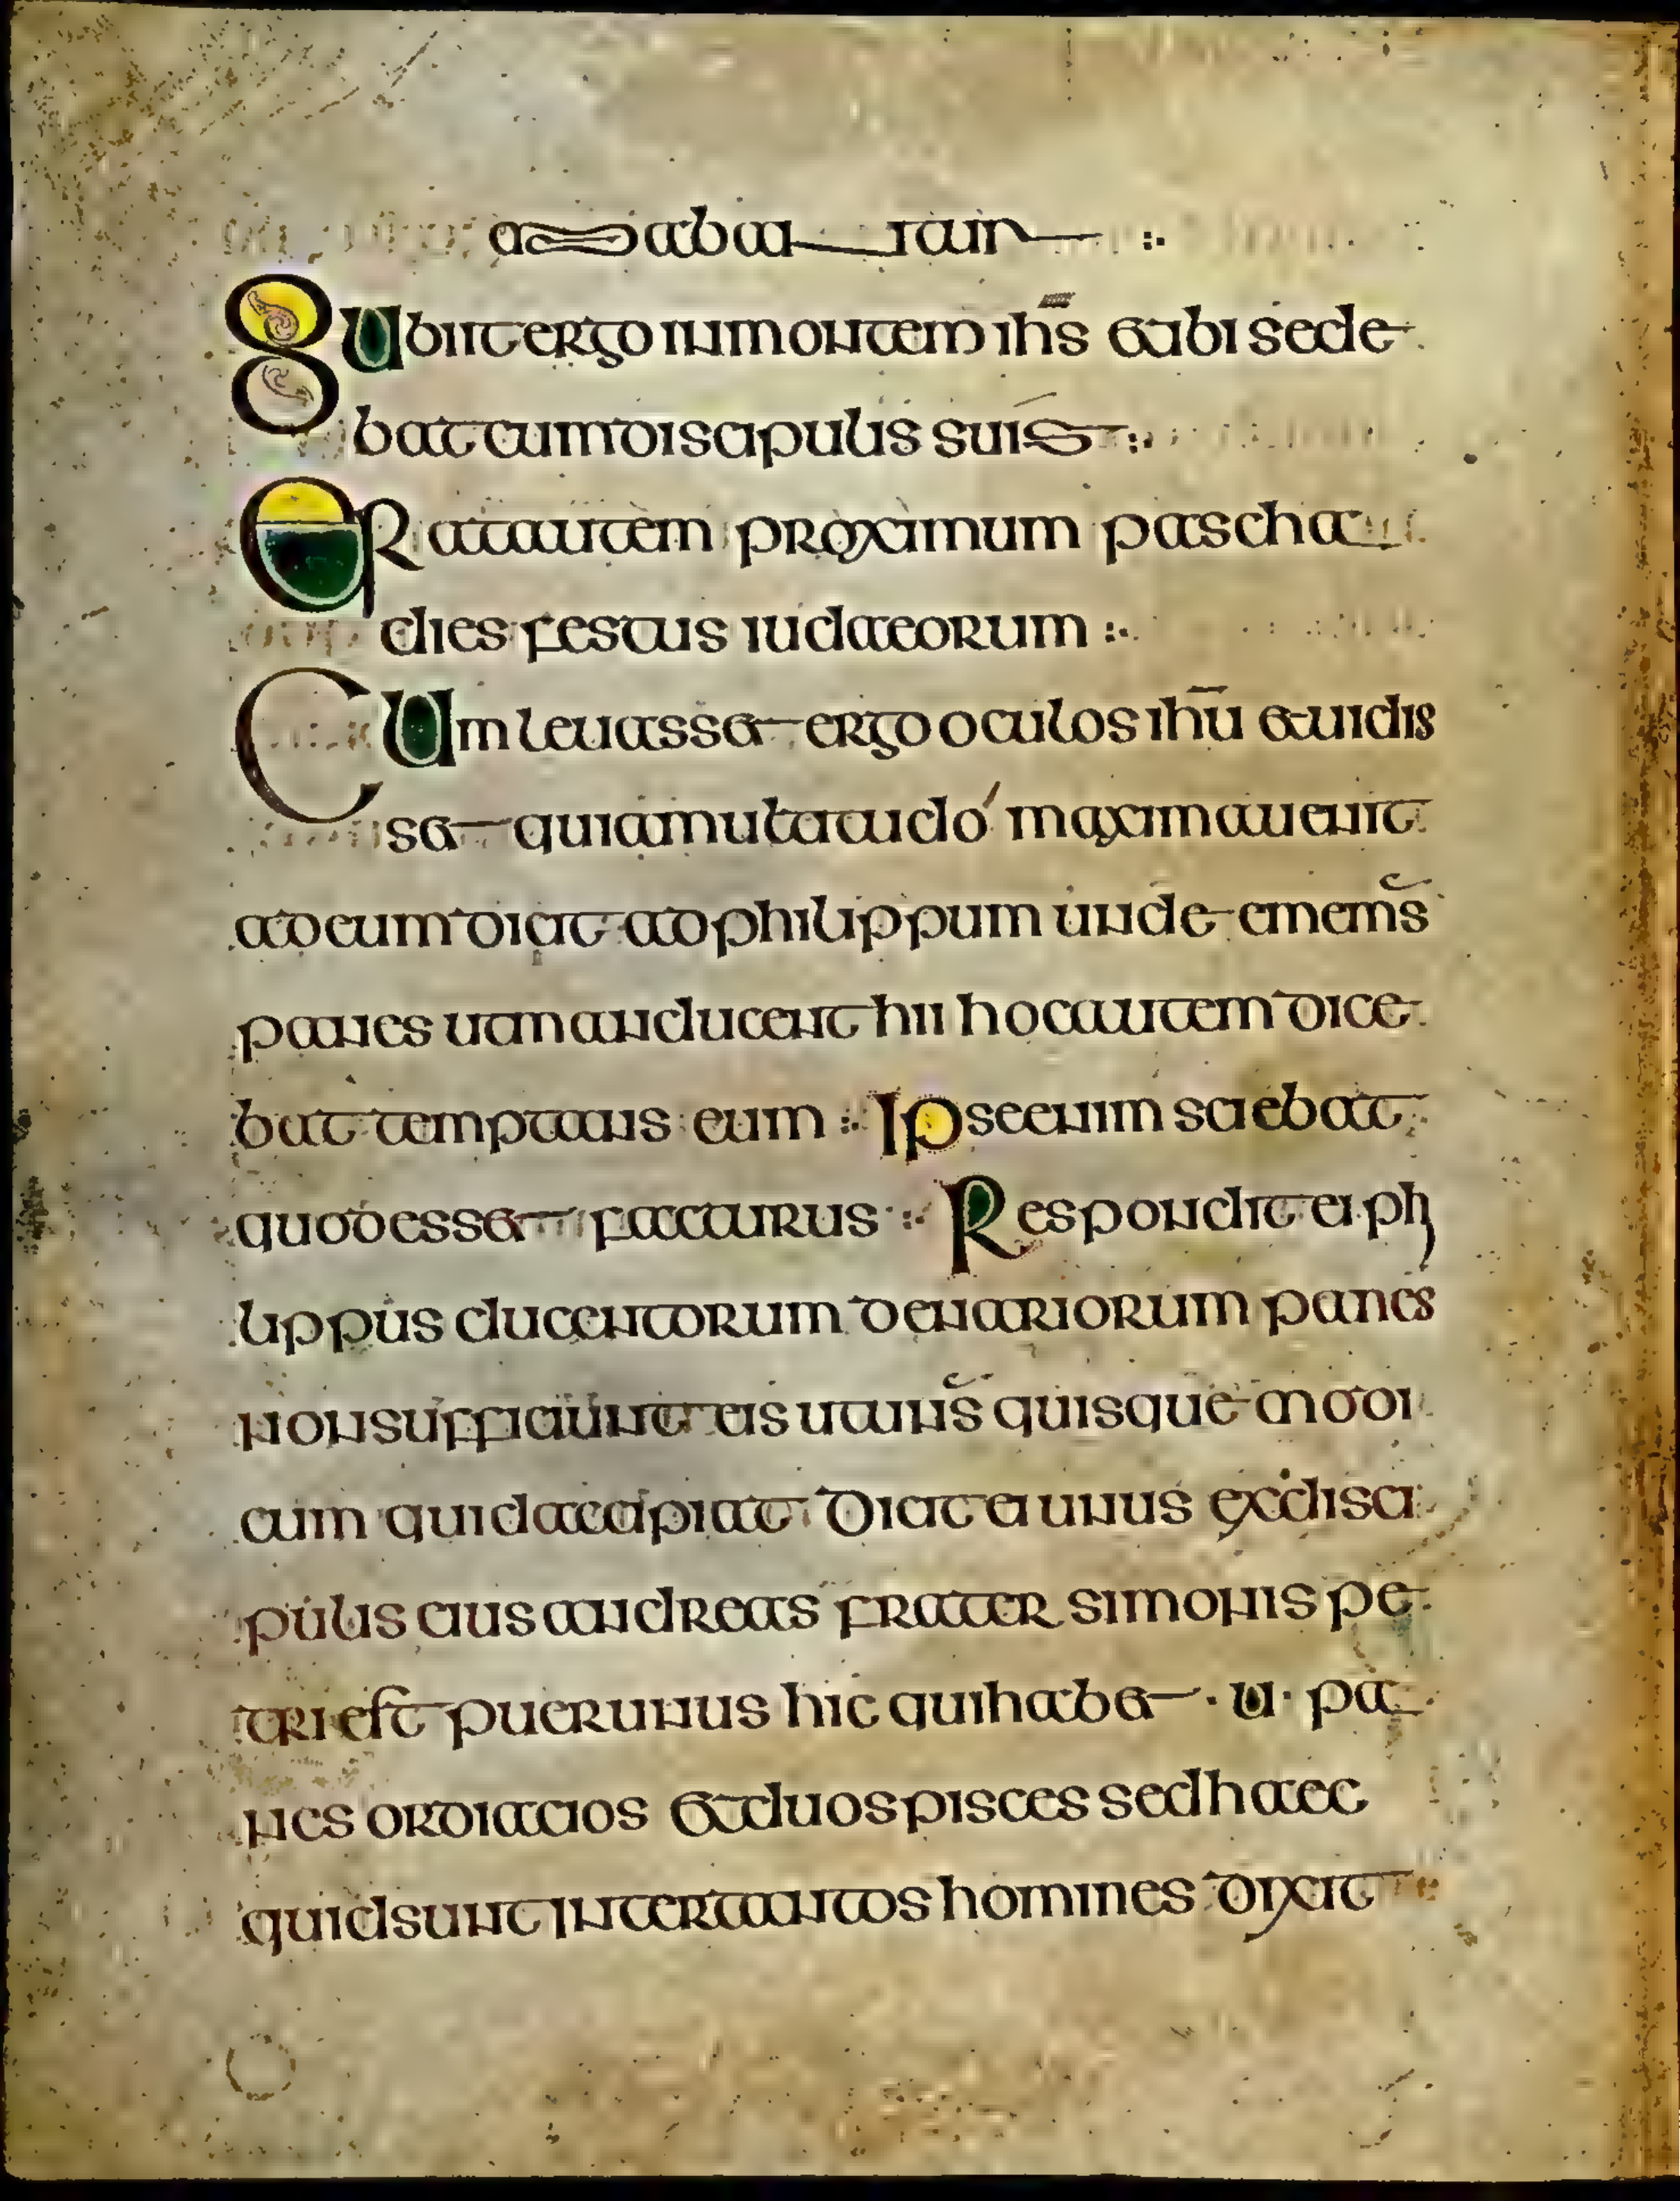 Subiit ergo in montem ihs̄ et ibi sede
bat cum discipulis suis :·
Erat autem proximum pascha
dies festus iudaeorum :·
Cum leuasset ergo oculos ihū et uidis
set quia multitudo maxima uenit
ad eum dicit ad philippum unde emem̄s
panes ut manducent hii hoc autem dice
bat temptans eum :· Ipse enim sciebat
quod esset facturus :· Respondit ei phi
lippus ducentorum denariorum panes
non sufficiunt eis ut un̄s quisque modi
cum quid accipiat Dicit ei unus ex disci
pulis eius andreas frater simonis pe
tri est puer unus hic qui habet · u · pa
nes ordiacios et duos pisces sed haec
quid sunt inter tantos homines dixit